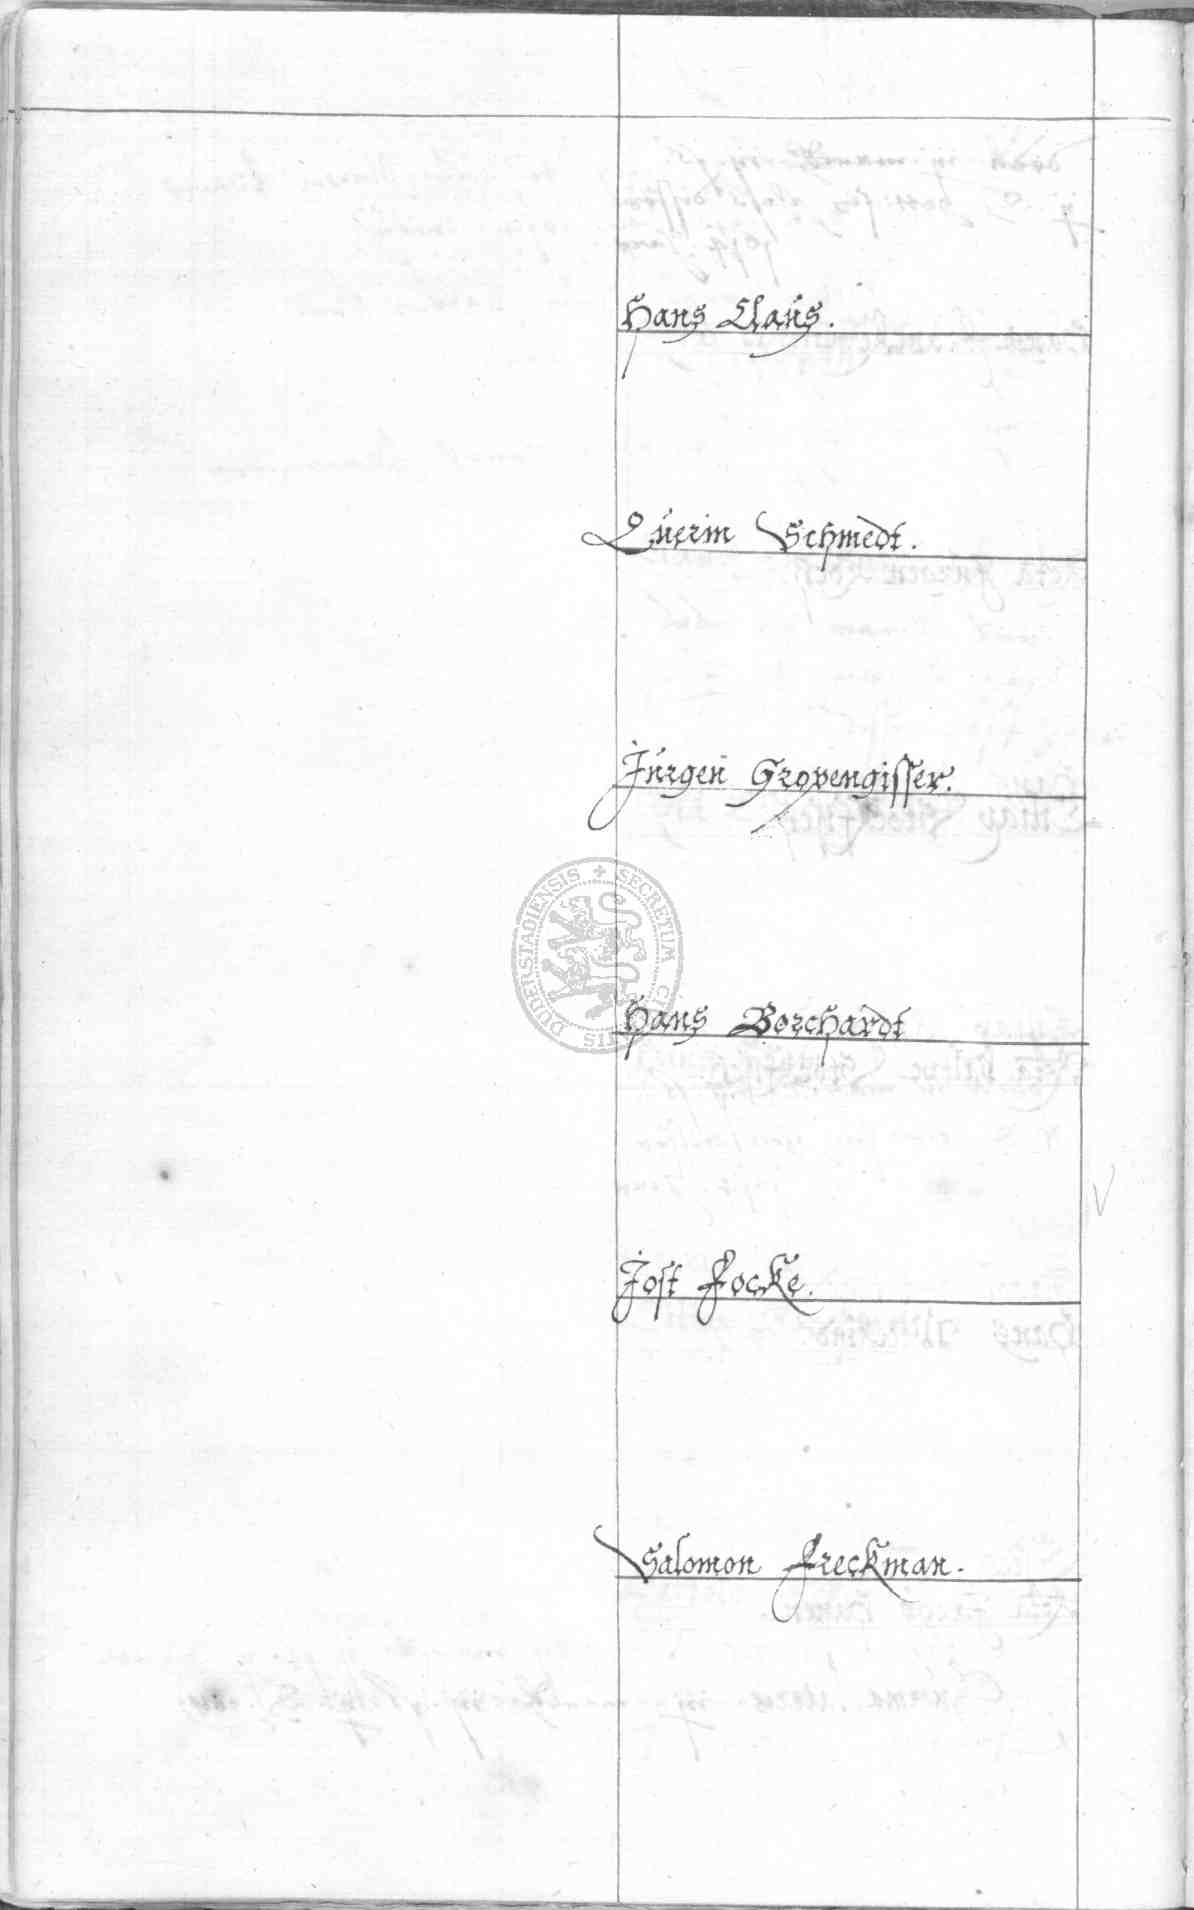 Hans Claus.
Querin Schmedt.
Jürgen Grovengisser.
DUDERSTADIENSIS + SECRETUM CI
SIP
Hans Borchardt
Jost Focke.
Salomon Freckman.